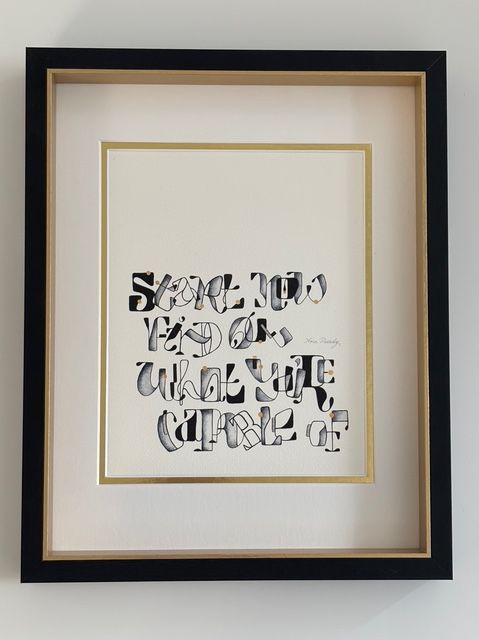 START NOW
FIND OUT
WHAT YOU'RE
CAPABLE OF